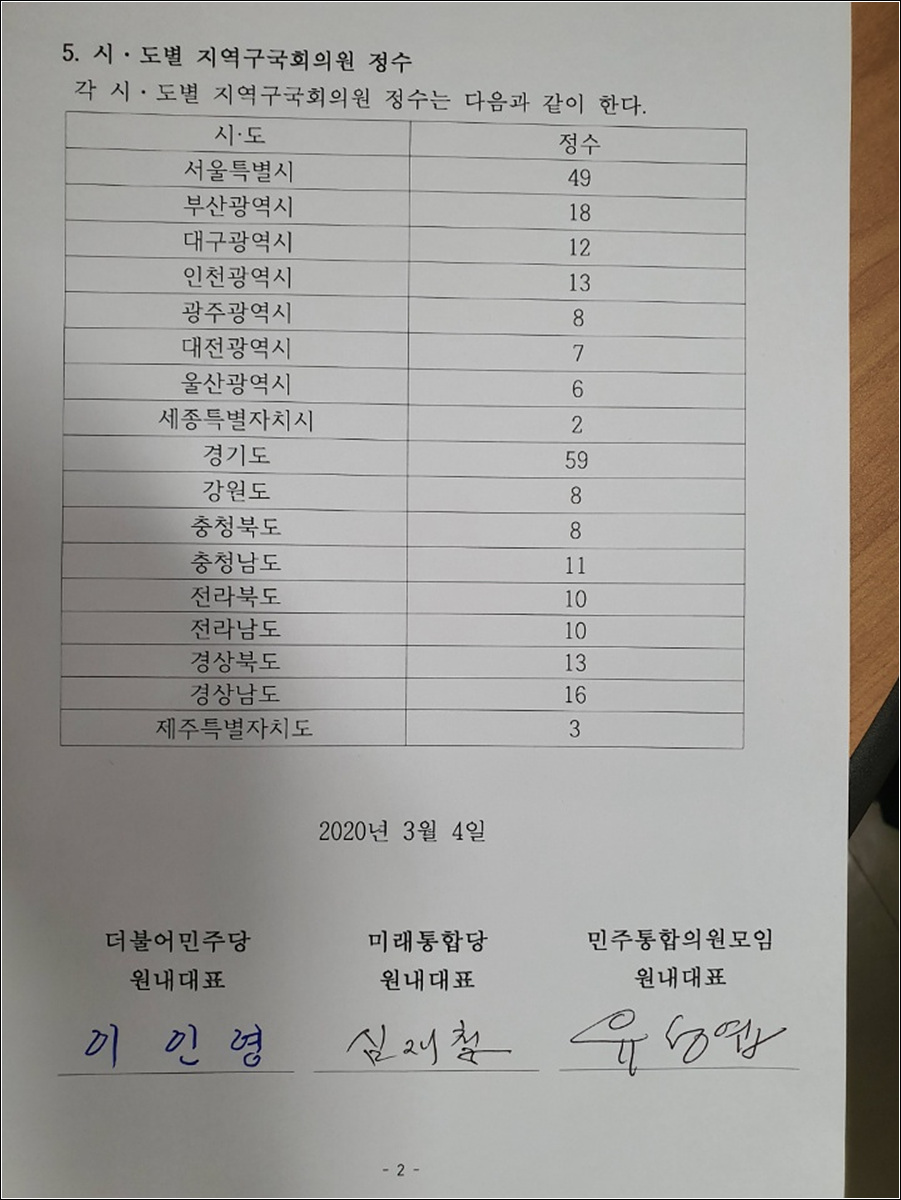 5. 시·도별 지역구국회의원 정수
각 시·도별 지역구국회의원 정수는 다음과 같이 한다.
시·도 정수
서울특별시 49
부산광역시 18
대구광역시 12
인천광역시 13
광주광역시 8
대전광역시 7
울산광역시 6
세종특별자치시 2
경기도 59
강원도 8
충청북도 8
충청남도 11
전라북도 10
전라남도 10
경상북도 13
경상남도 16
제주특별자치도 3
2020년 3월 4일
더불어민주당 미래통합당 민주통합의원모임
원내대표 원내대표 원내대표
이 인 영 심재철 유성엽
- 2 -